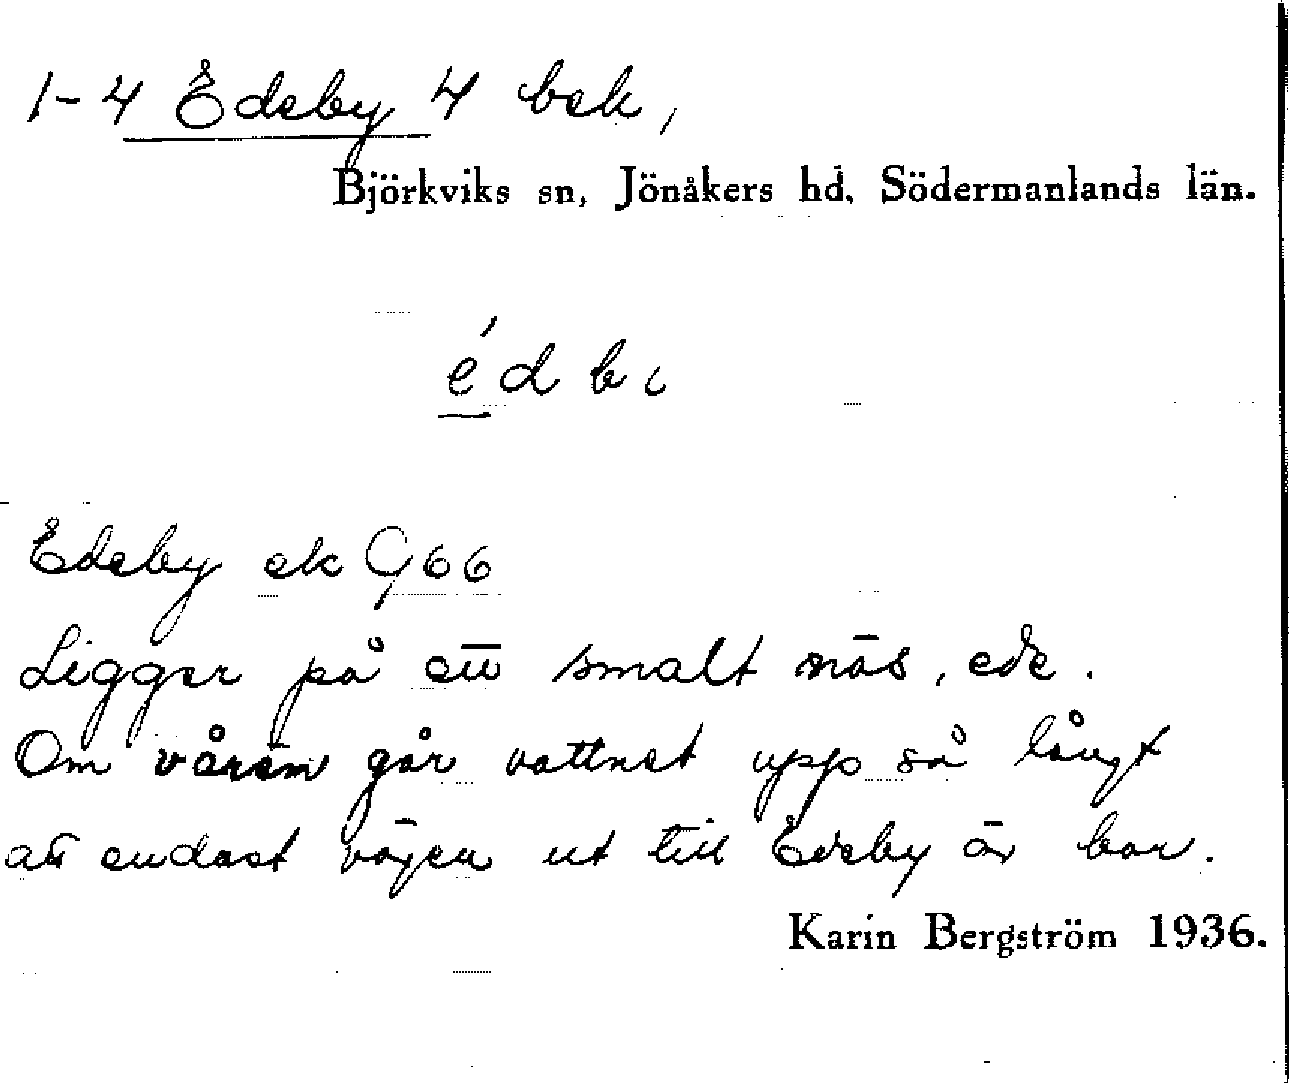 1-4 Edeby 4 bek,
Björkviks sn, Jönåkers hd, Södermanlands län.
édbi
Edeby ek G66
Ligger på ett smalt näs, ede.
Om våren går vattnet upp så långt
att endast vägen ut till Edeby är bar.
Karin Bergström 1936.